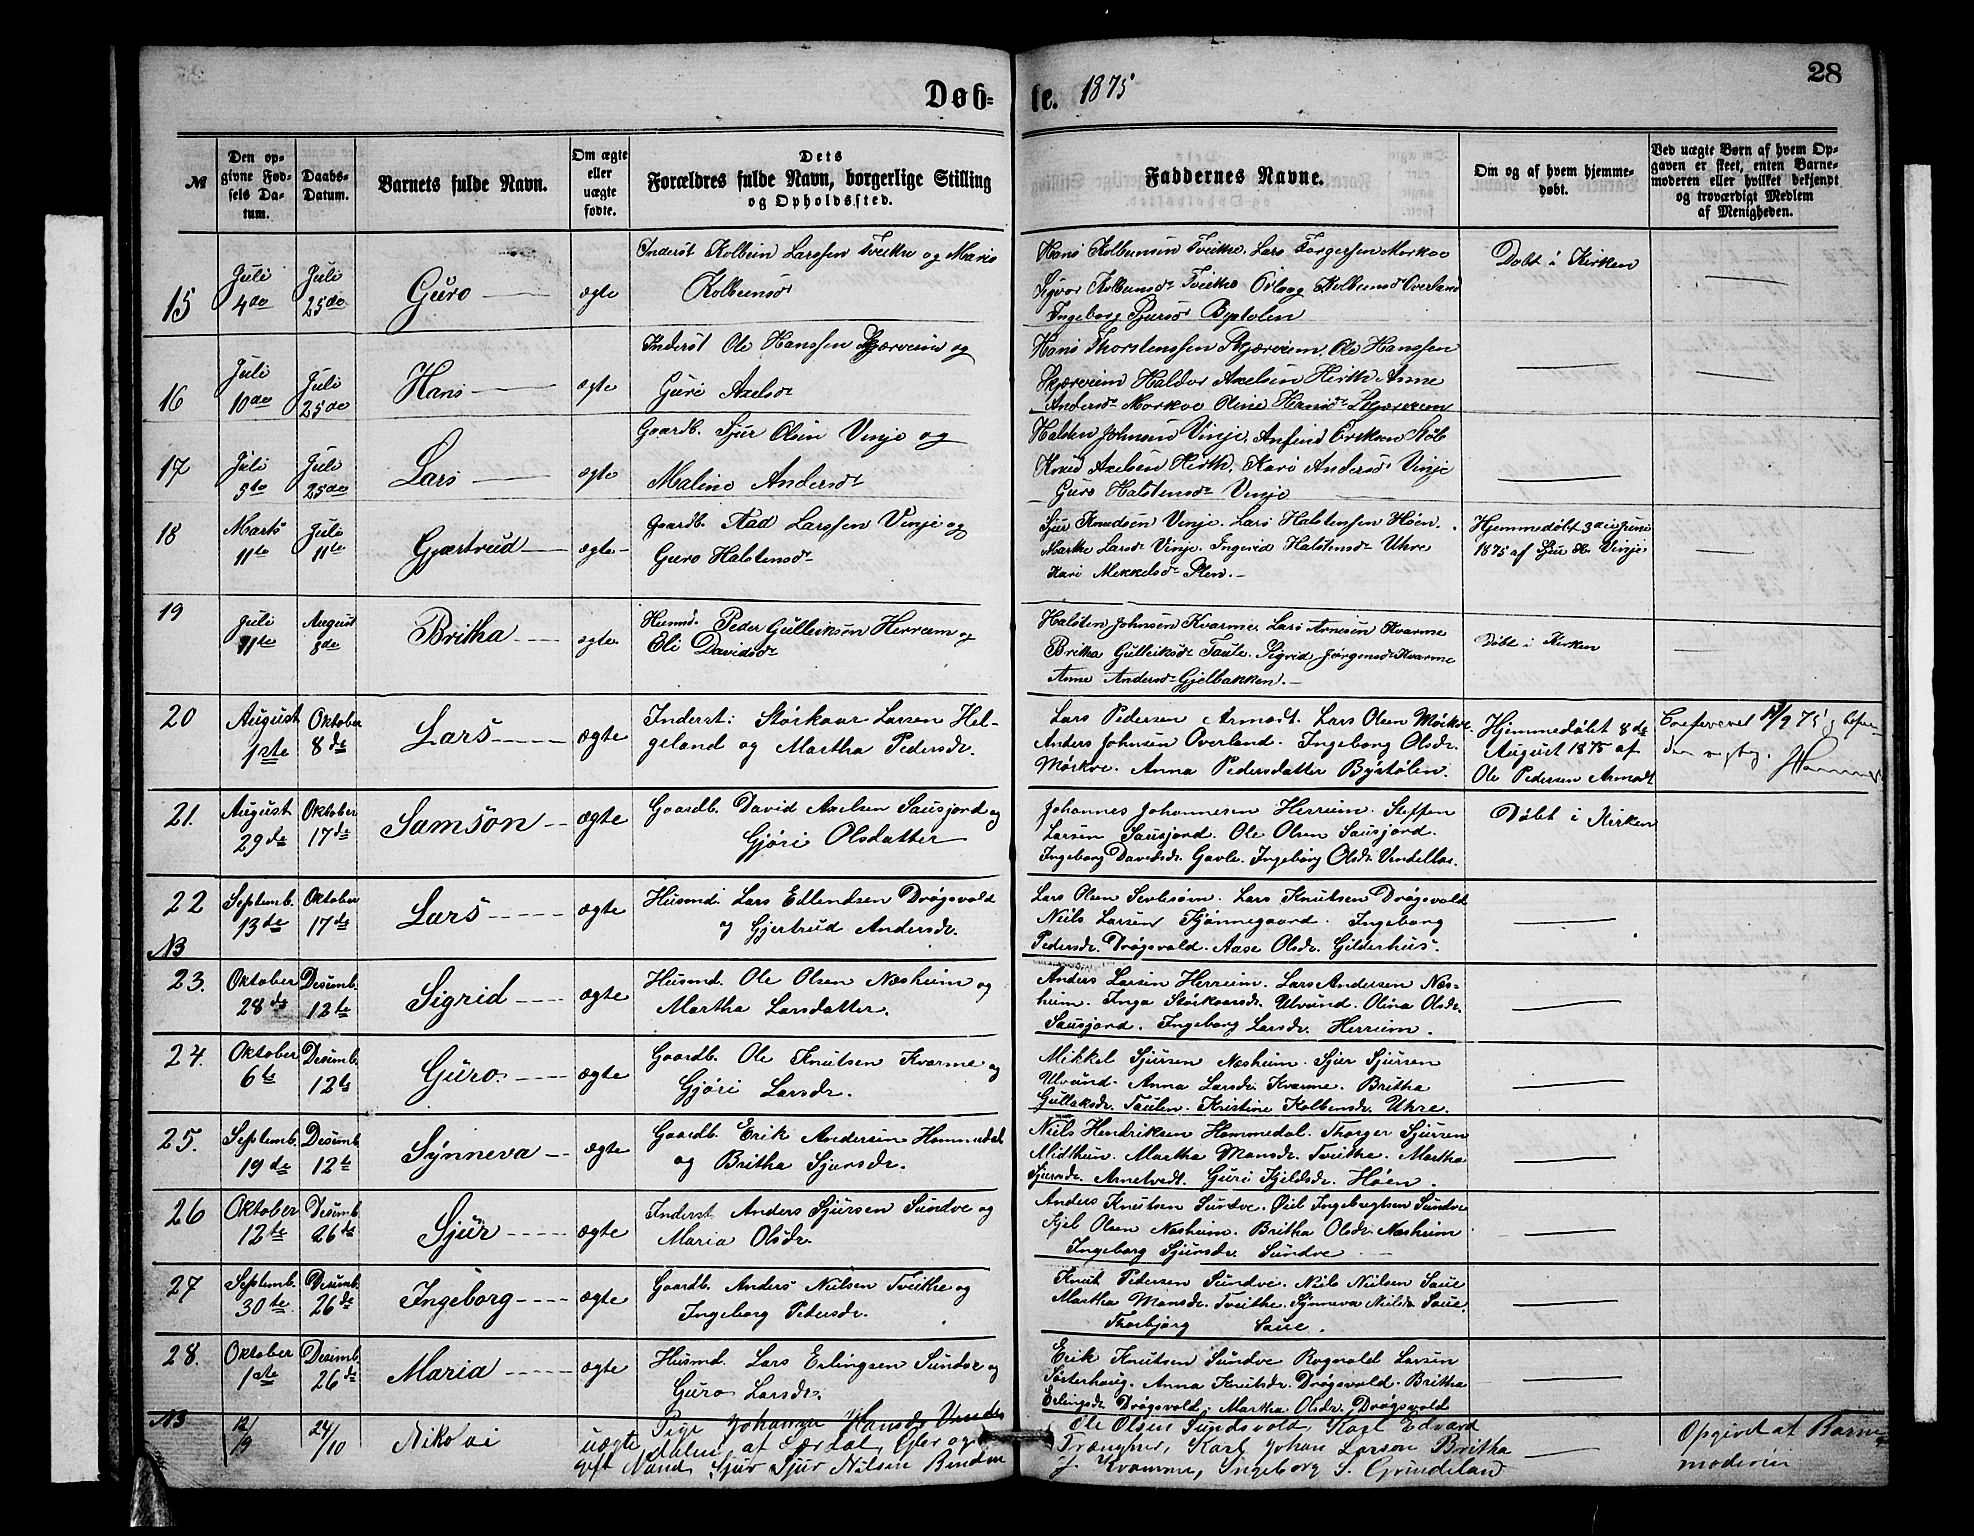 Døb-
te. 1875
28
№
Den op-
givne Fød-
sels Da-
tum.
Daabs-
Datum.
Barnets fulde Navn.
Om ægte
eller
uægte
fødte.
Dets
Forældres fulde Navn, borgerlige Stilling
og Opholdssted.
Faddernes Navne.
Om og af hvem hjemme-
døbt.
Ved uægte Børn af hvem Op-
gaven er skeet, enten Barne-
moderen eller hvilket bekjendt
og troværdigt Medlem
af Menigheden.
15
Juli
4de
Juli
25de
Guro
ægte
Inderst Kolbein Larssen Tveithe og Maris
Kolbeinsdr
Hans Kolbeinsen Tveithe. Lars Torgersen Mørkve
Sigvor Kolbeinsdr Tveithe Odlaug Kolbeinsdr Överland
Ingeborg Sjursdr Bystølen
Døbt i Kirken
16
Juli
10de
Juli
25de
Hans
ægte
Inderst Ole Hanssen Skjærveim og
Guri Axelsdr
Hans Thorstenssen Skjærveim. Ole Hanssen
Skjærveim Haldor Axelsen Hirth Anne
Andersdr Mørkve Oline Skjærveim
17
Juli
5te
Juli
25de
Lars
ægte
Gaardb. Sjur Olsen Vinje og
Maline Andersdr
Halsten Johnsen Vinje. Anfind Erikson Støb
Knud Axelsen Hirth. Kari Andersdr Vinje
Guro Halstensdr Vinje
18
Marts
11te
Juli
11te
Gjærtrud
ægte
Gaardb. Aad Larssen Vinje og
Guro Halstensdr
Sjur Knudsen Vinje. Lars Halstensen Høen.
Marthe Larsdr Vinje. Ingerid Halstensdr Uhre
Kari Mikkelsdr Flen.
Hjemmedøbt 3die Juni
1875 af Vinje
19
Juli
11te
August
8de
Britha
ægte
Husmd. Peder Gulleiksen Herreim og
Eli Davidsdr
Halsten Johnsen Kvarme. Lars Arnesen Kvarme
Britha Gulleiksdr Taule. Sigrid Jørgensdr Kvarme
Anne Andersdr Gjelbakken.
Døbt i Kirken
20
August
1ste
Oktober
8de
Lars
ægte
Inderst: Störkaar Larsen Hel-
geland og Martha Pedersdr.
Lars Pedersen Armodt. Lars Olsen Mørkve
Anders Johnsen Overland. Ingeborg Olsdr.
Mørkve. Anna Pedersdatter Bystølen.
Hjemmedøbt 8de
August 1875 af
Ole Pedersen Armodt
21.
August
29de
Oktober
17de
Samson
ægte
Gaardb. David Axelsen Sausjord og
Gjøri Olsdatter
Johannes Johannesen Herreim. Steffen
Larsen Sausjord. Ole Olsen Sausjord.
Ingeborg Davidsdr. Gavle. Ingeborg Olsdr. Vendellas.
Døbt i Kirken
22
Septemb.
13de
Oktober
17de
Lars
ægte
Husmd. Lars Edlendsen Drøgsvold
og Gjertrud Andersdr.
Lars Olsen. Lars Knutsen Drøgsvold
Niels Larsen Tjønnegaard. Ingeborg
Pedersdr. Drøgsvold. Aase Olsdr. Gilderhus.
NB
23.
Oktober
28de
Desemb.
12te
Sigrid
ægte
Husmd. Ole Olsen Nesheim og
Martha Larsdatter.
Anders Larsen Herreim. Lars Andersen Nes-
heim. Inga Störkaarsdr. Ulvund. Olina Olsdr.
Sausjord. Ingeborg Larsdr. Herreim.
24.
Oktober
6te
Desemb.
12te
Guro.
ægte
Gaardb. Ole Knutsen Kvarme og
Gjøri Larsdr.
Mikkel Sjursen Nesheim. Sjur Sjursen
Ulvund. Anna Larsdr. Kvarme. Britha
Gullaksdr. Taulen. Kristine Kolbensdr. Uhre.
25.
Septemb.
19de
Desemb.
12te
Synneva
ægte
Gaardb. Erik Andersen Hommedal
og Britha Sjursdr.
Niels Hendriksen Hommedal. Thorger Sjursen
Midthun. Martha Monsdr. Tveithe. Martha
Sjursdr. Arnetvedt. Guri Kjeldsdr. Høen.
26
Oktober
12te
Desemb.
26de
Sjur
ægte
Inderst Anders Sjursen Sundve og
Maria Olsdr.
Anders Knutsen Sundve. Øiel Ingebrigtsen Sundve
Kjel Olsen Nesheim. Britha Olsdr. Nesheim
Ingeborg Sjursdr Sundve
27
Septemb.
30te
Desemb.
26de
Ingeborg
ægte
Gaardb. Anders Nielsen Tveithe og
Ingeborg Pedersdr.
Knut Pedersen Sundve. Niels Nielsen Saue
Martha Monsdr. Tveithe. Synneva Nielsdr Saue.
Thorbjørg Saue.
28.
Oktober
1ste
Desemb.
26de
Maria
ægte
Husmd. Lars Erlingsen Sundve og
Guro Larsdr.
Erik Knutsen Sundve Rognald Larsen
Sösterhaug. Anna Knutsdr. Drøgsvold. Britha
Erlingsdr Drøgsvold. Martha Olsdr. Drøgsvold
NB
12/9
24/10
Nikolai
uægte
Pige Johanna Hansdr
gift Mand Sjur Sjur Nilsen
Ole Olsen Sundsvold, Karl Edvard
Trængner, Karl Johan Larson Britha
J. Kvamme, Ingeborg S. Grindeland
Opgivet at Barne
moderen